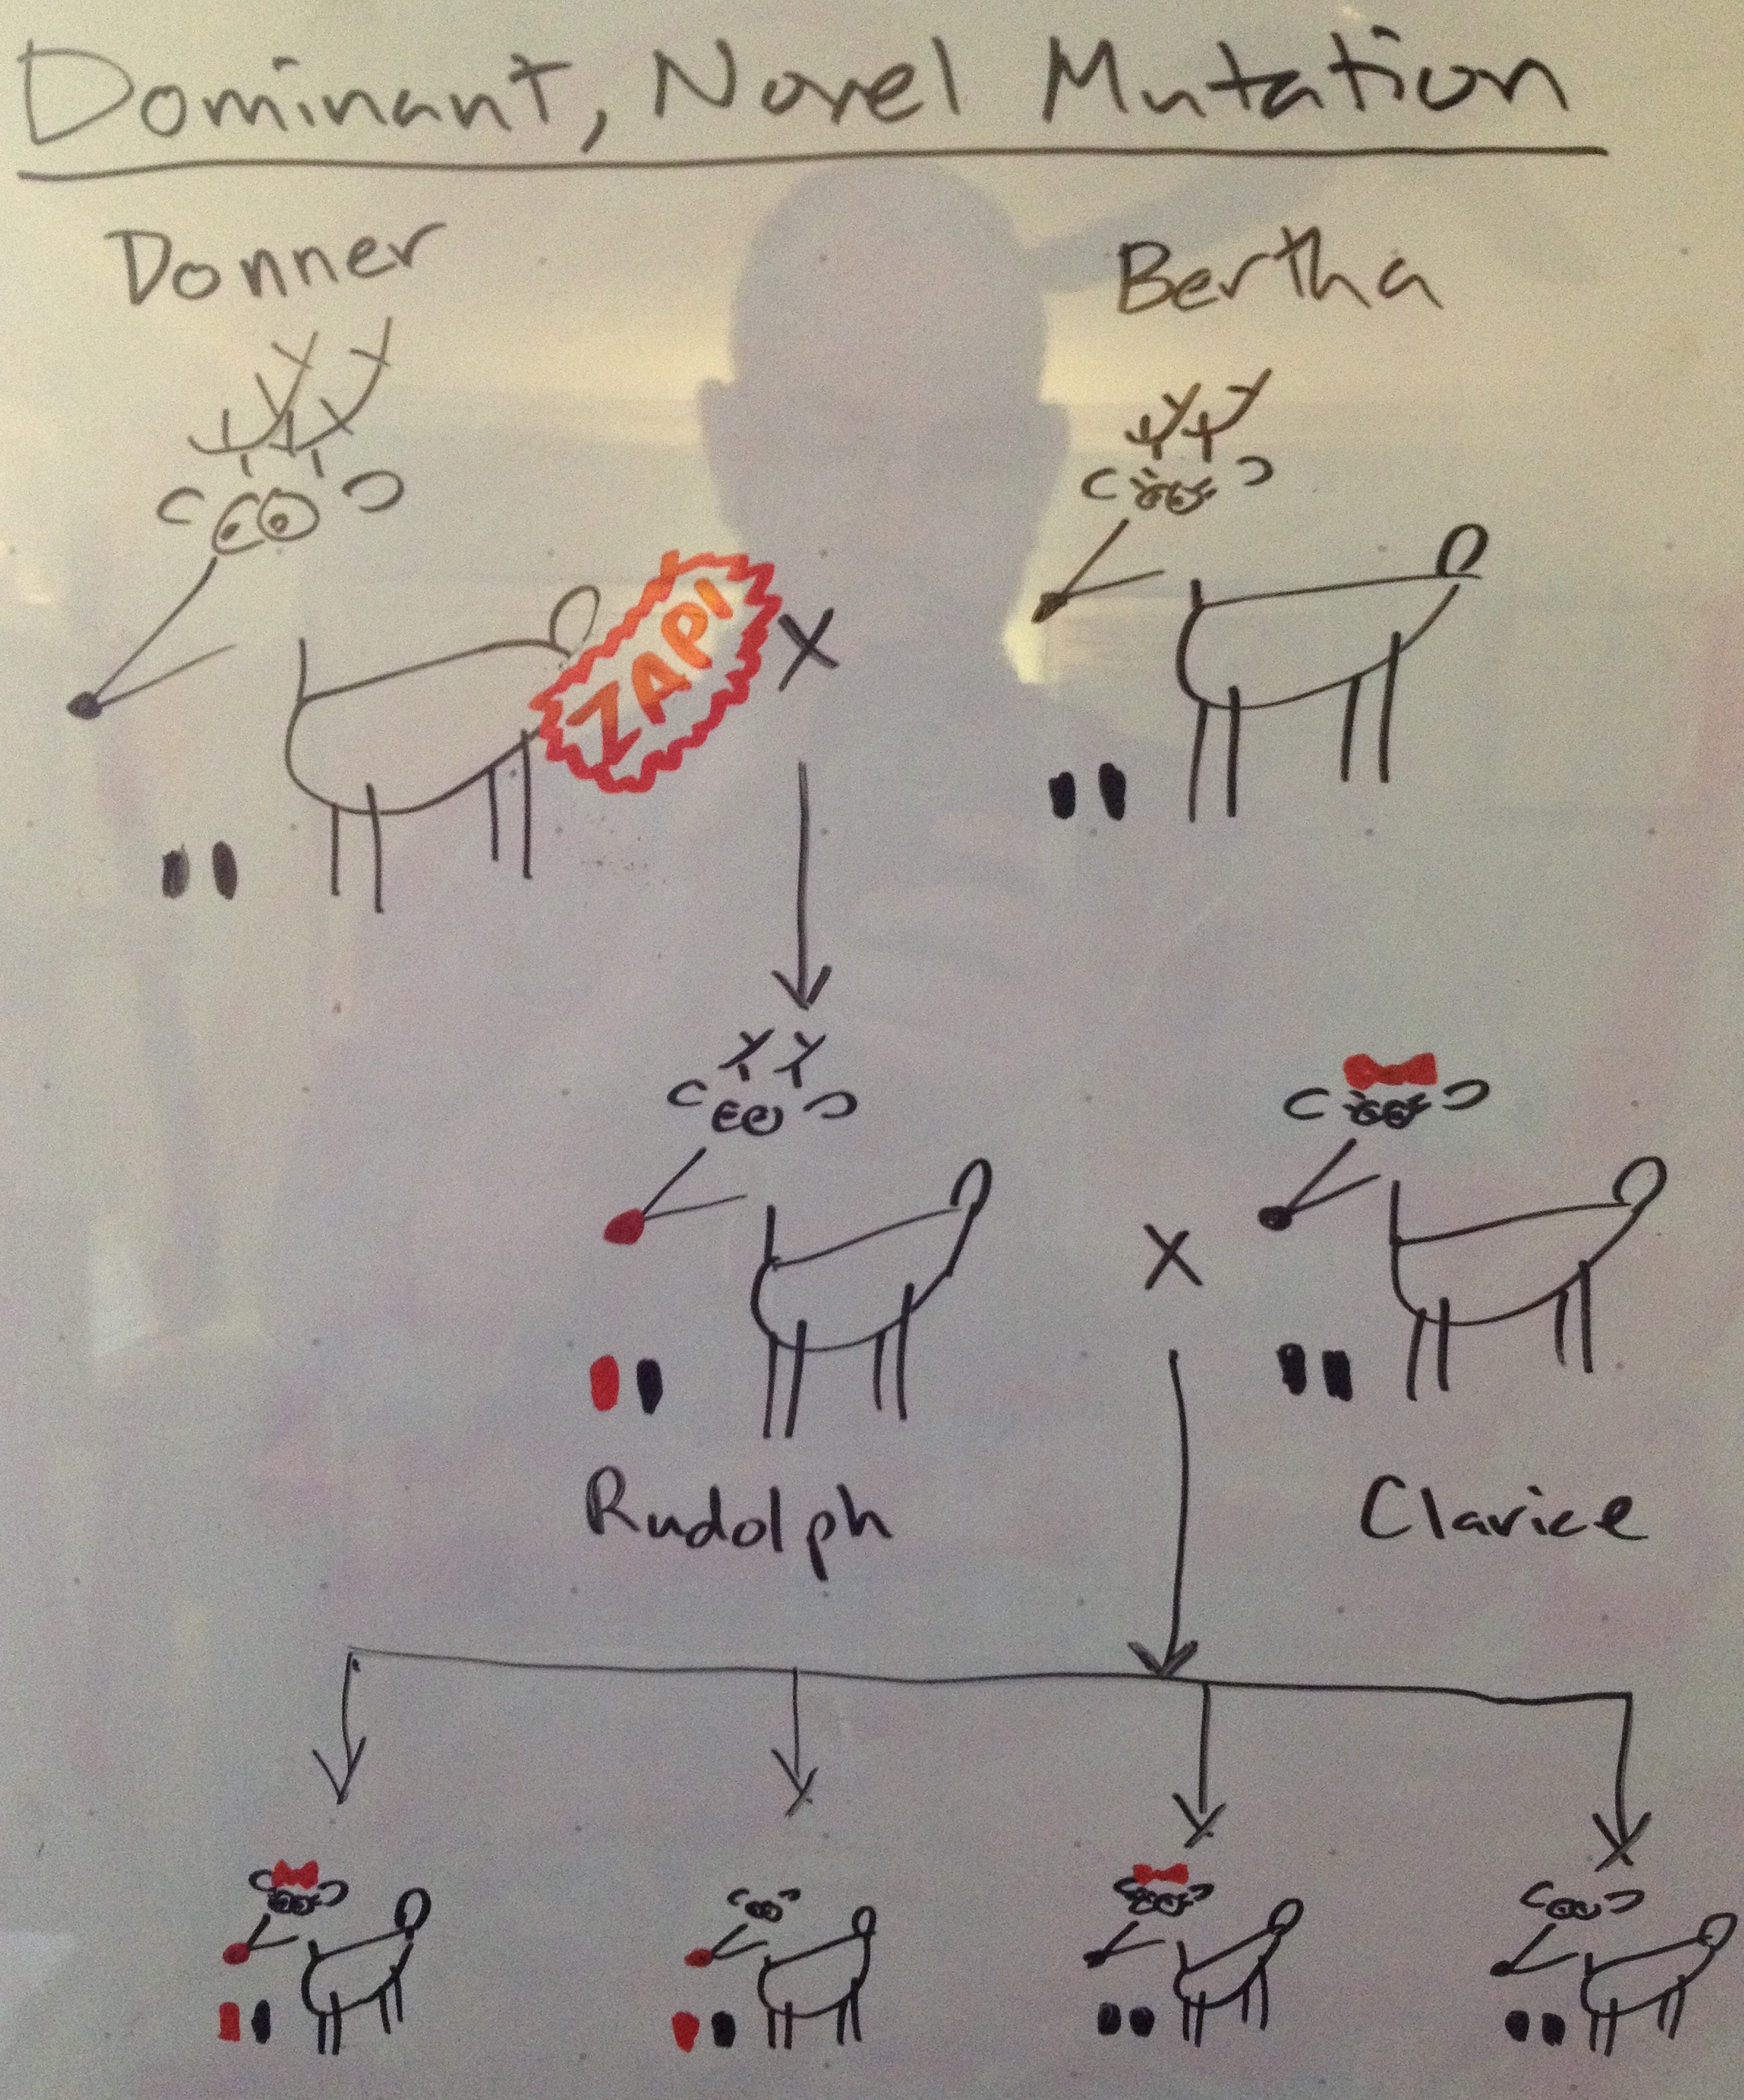 Dominant, Novel Mutation
Donner
Bertha
ZAP!
X
Rudolph
X
Clarice